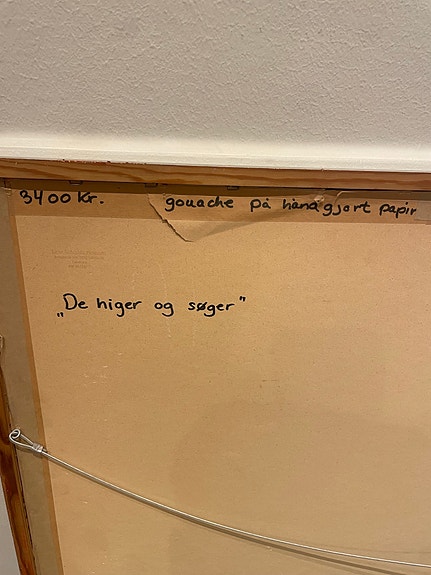 3400 kr. gouache på håndgjort papir
„De higer og søger"